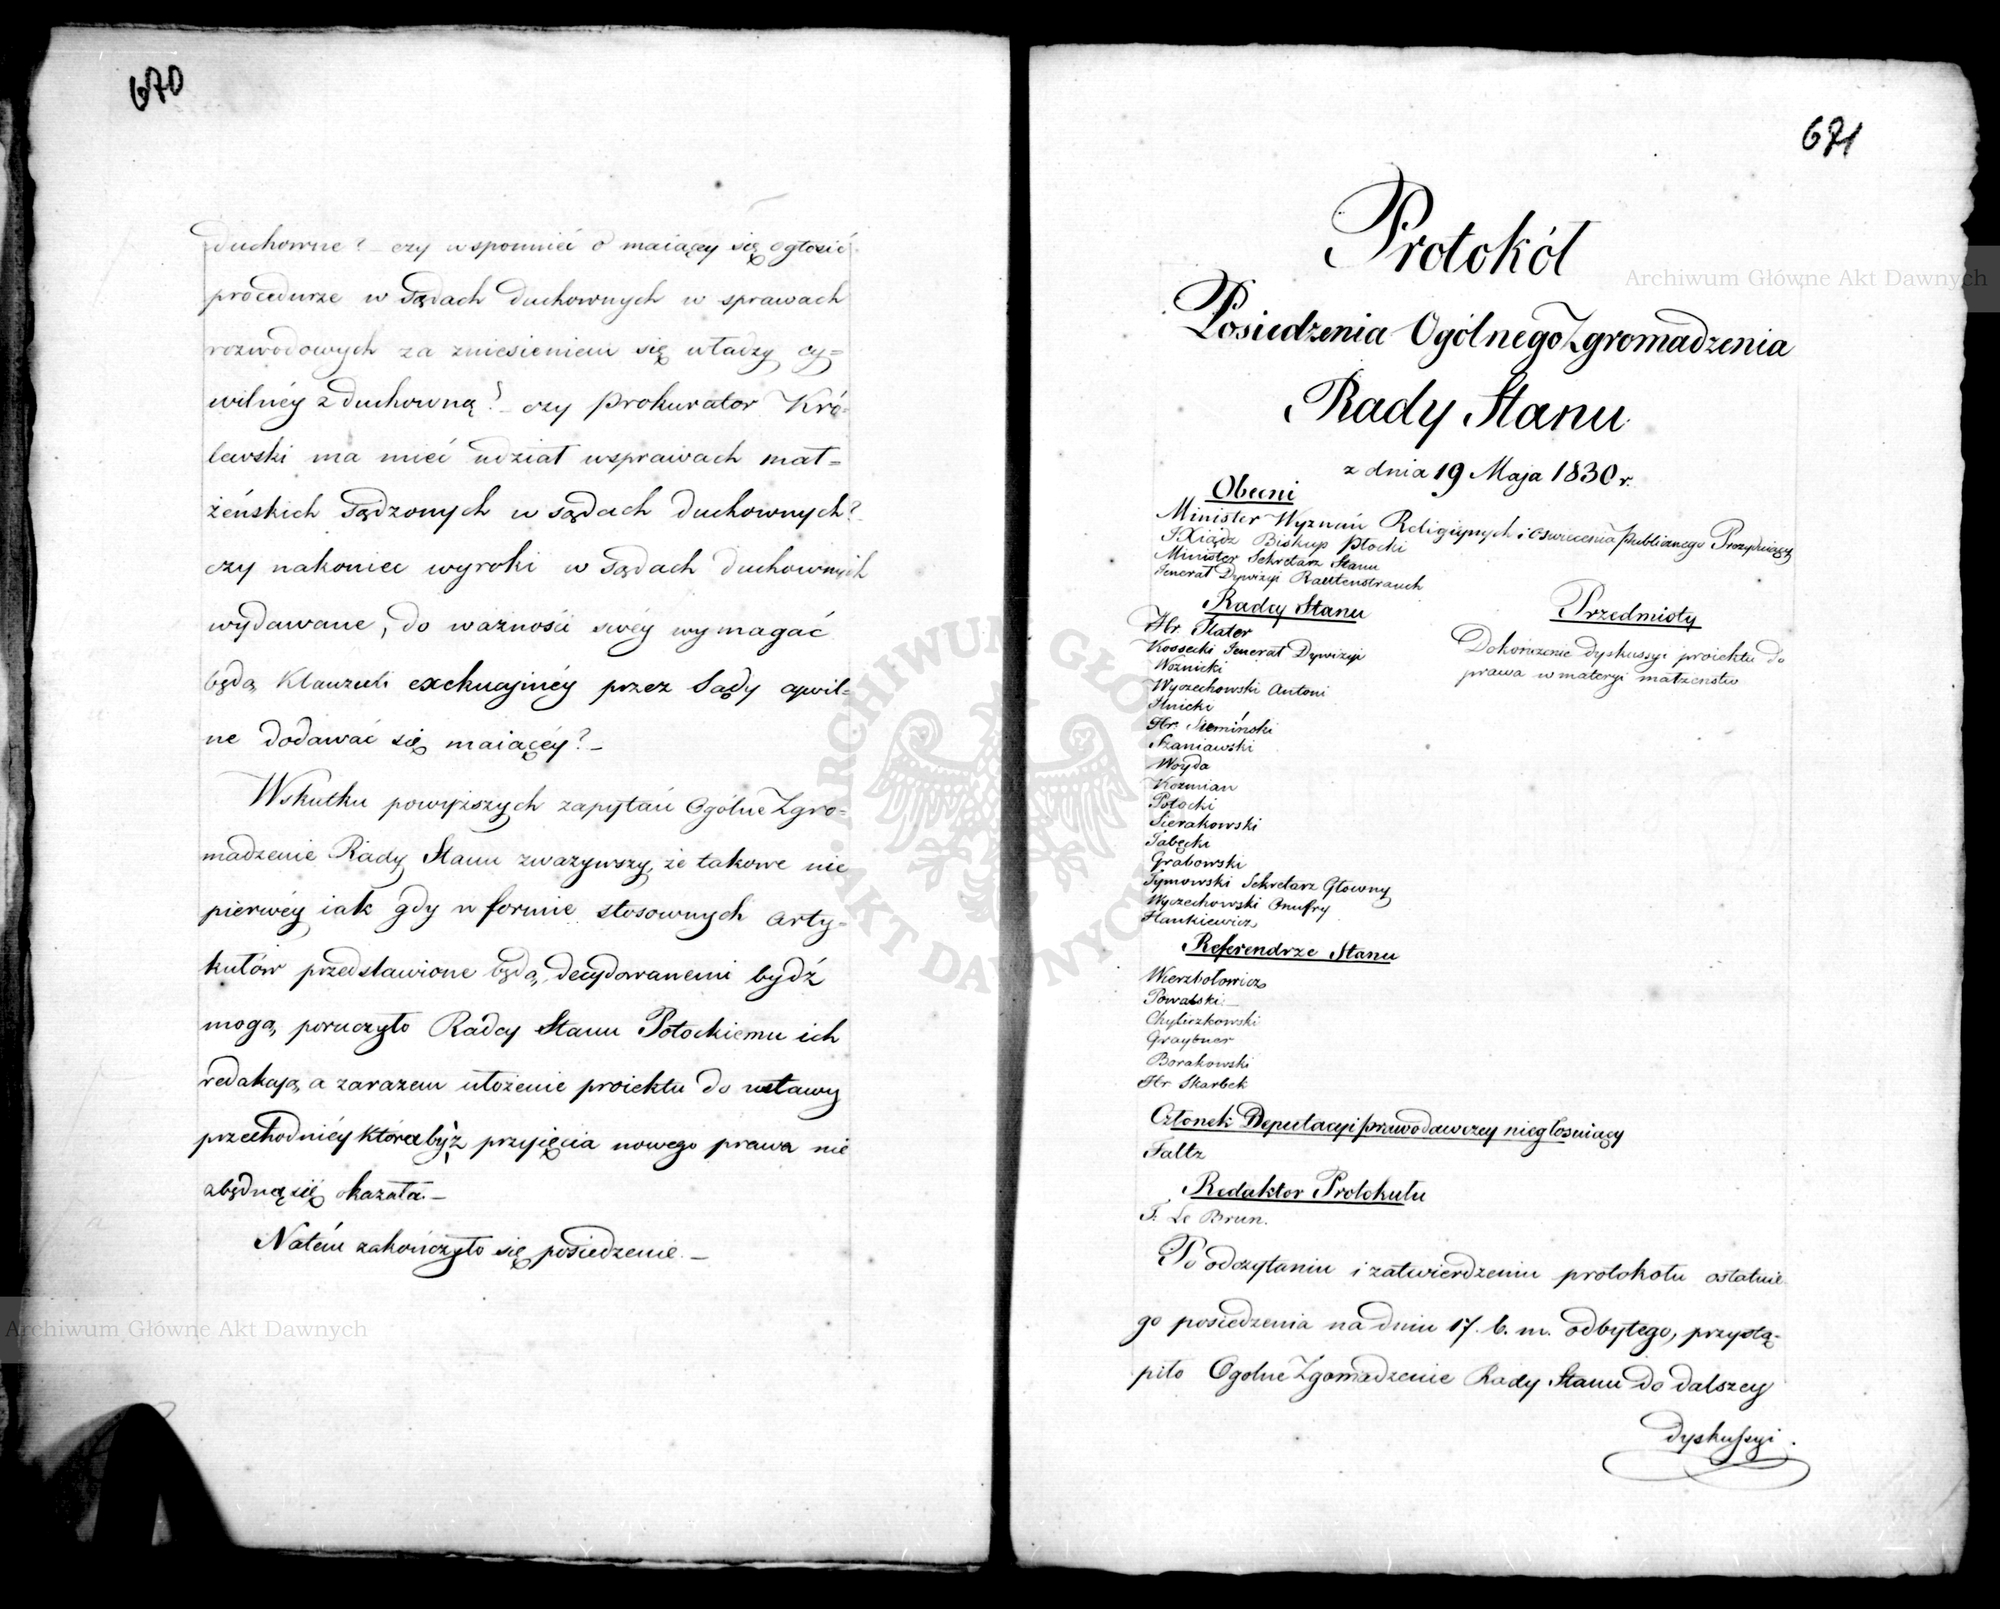 670
duchowne? – czy wspomnieć o maiącey się ogłosić
procedurze w sądach duchownych w sprawach
rozwodowych za zniesieniem się władzy cy=
wilnéy z duchowną? – czy Prokurator Kró=
lewski ma mieć udział w sprawach mał=
żeńskich sądzonych w sądach duchownych? –
czy nakoniec wyroki w sądach duchownych
wydawane, do ważności swéy wymagać
będą Klauzuli exekucyinéy przez Sądy cywil=
ne dodawać się maiącéy? –
Wskutku powyższych zapytań Ogólne Zgro=
madzenie Rady Stanu zważywszy, że takowe nie
pierwéy iak gdy w formie stosownych arty=
kułów przedstawione będą, decydowanemi bydź
mogą, poruczyło Radcy Stanu Potockiemu ich
redakcyą, a zarazem ułożenie proiektu do ustawy
przechodniéy któraby z przyięcia nowego prawa nie
zbędną się okazała. –
Natém zakończyło się posiedzenie. –
671
Protokół
Posiedzenia Ogólnego Zgromadzenia
Rady Stanu
z dnia 19 Maja 1830 r.
Obecni
Minister Wyznań Religiynych i Oświecenia Publicznego Prezyduiący
JXiądz Biskup Płocki
Minister Sekretarz Stanu
Jenerał Dywizyi Rautenstrauch
Radcy Stanu
Hr. Plater
Kossecki Jenerał Dywizyi
Woźnicki
Wyczechowski Antoni
Hnicki
Hr. Siemiński
Szaniawski
Woyda
Koźmian
Potocki
Sierakowski
Tabęcki
Grabowski
Tymowski Sekretarz Główny
Wyczechowski Onufry
Hankiewicz
Przedmioty
Dokończenie dyskussyi proiektu do
prawa w materyi małżeństw
Referendrze Stanu
Wierzbołowicz
Powalski. –
Chyliczkowski
Graybner
Borakowski
Hr Skarbek
Członek Deputacyi prawodawczey niegłosuiący
Faltz
Redaktor Protokułu
T. Le Brun.
Po odczytaniu i zatwierdzeniu protokołu ostatnie
go posiedzenia na dniu 17. b. m. odbytego, przystą=
piło Ogolne Zgomadzenie Rady Stanu do dalszey
dyskussyi.
Archiwum Główne Akt Dawnych
Archiwum Główne Akt Dawnych
ARCHIWUM GŁÓWNE AKT DAWNYCH